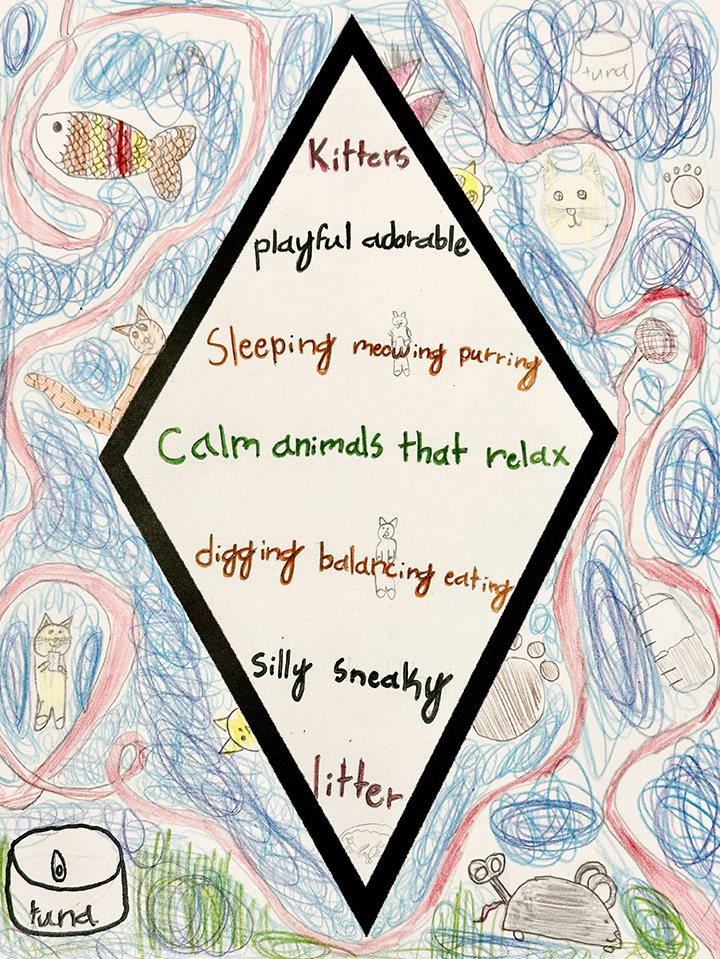 tuna
Kitters
playful adorable
Sleeping meowing purring
Calm animals that relax
digging balancing eating
silly sneaky
litter
tuna